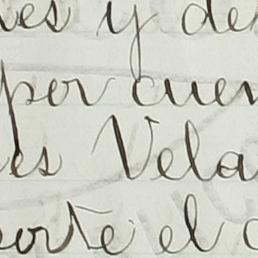 es y de
por cuen
es Vela
porte el